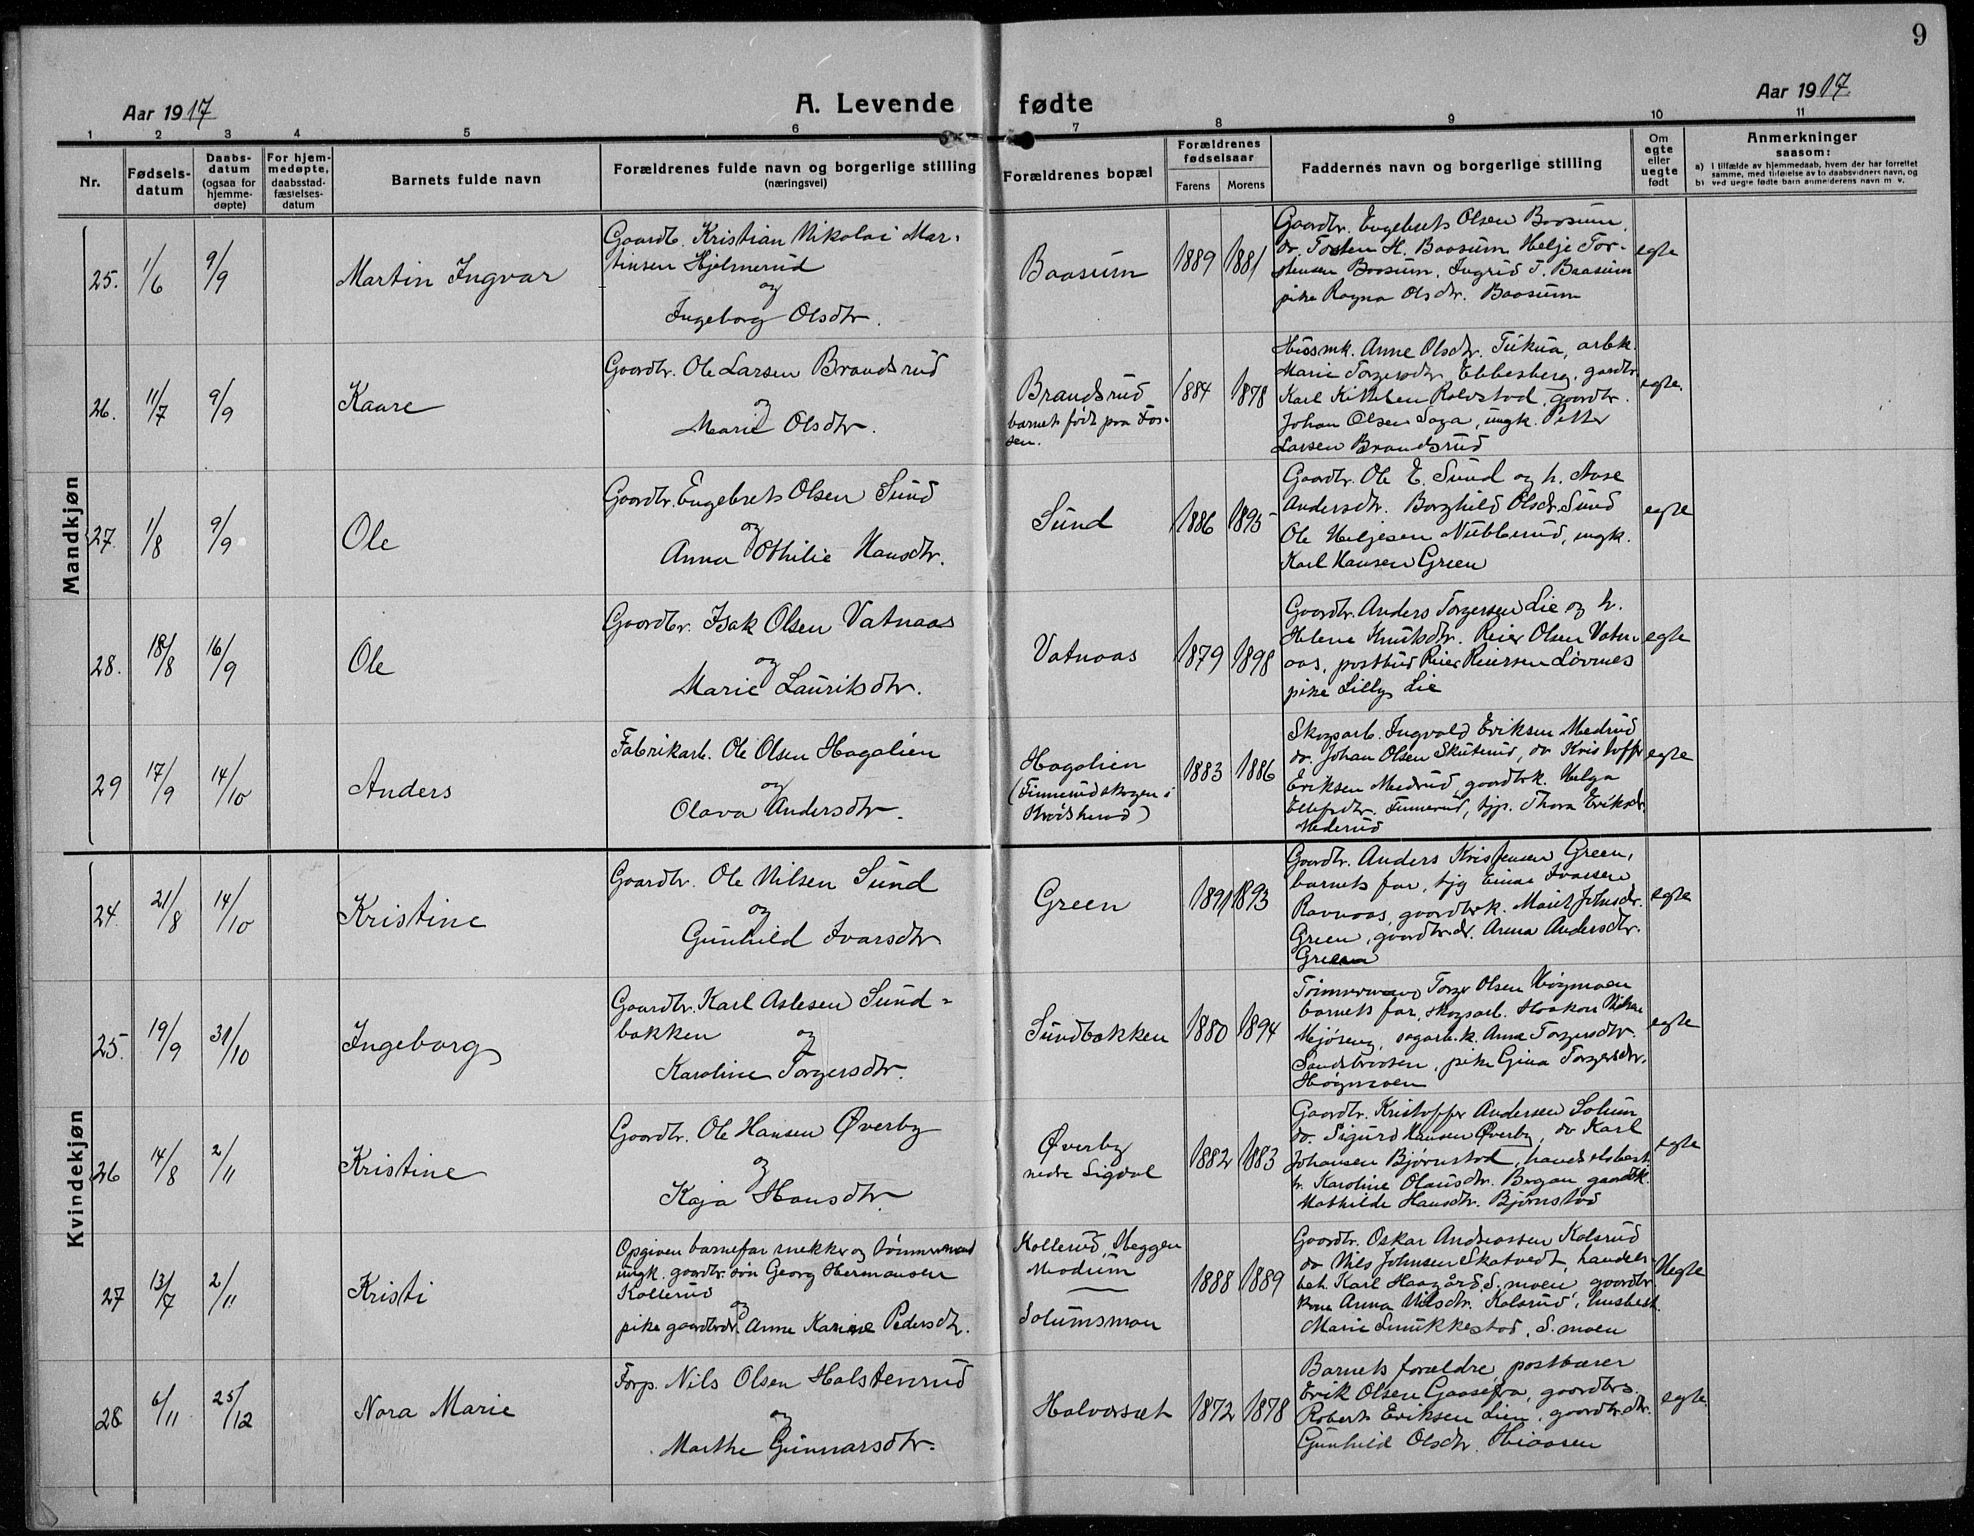 9
Aar 1917
A. Levende fødte
Aar 1917
1 2 3 4 5 6 7 8 9 10 11
Nr.
Fødsels-
datum
Daabs-
datum
(ogsaa for
hjemme-
døpte)
For hjem-
medøpte,
daabsstad-
fæstelses-
datum
Barnets fulde navn
Forældrenes fulde navn og borgerlige stilling
(næringsvei)
Forældrenes bopæl
Forældrenes
fødselsaar
Farens Morens
Faddernes navn og borgerlige stilling
Om
egte
eller
uegte
født
Anmerkninger
saasom:
a) I tilfælde av hjemmedaab, hvem der har forrettet
samme, med tilføielse av to daabsvidners navn, og
b) ved uegte fødte barn anmelderens navn m. v.
Mandkjøn
25. 1/6 9/9 Martin Ingvar
Gaardb. Kristian Nikolai Mar-
tinsen Hjelmerud
og
Ingeborg Olsdtr.
Baasum
1889 1881
Gaardbr. Engebret Olsen Baasum,
do. Tosten H. Baasum, Helje Tor-
stensen Baasum, Ingrid T. Baasum
pike Ragna Olsdtr. Baasum
egte
26. 11/7 9/9 Kaare
Gaardbr. Ole Larsen Brandsrud
og
Marie Olsdtr.
Brandsrud
barnet født paa Fos-
sen.
1884 1878
Husmk. Anne Olsdtr. arbk.
Marie Torgersdtr. Ebbesberg, gardbr.
Karl Kittelsen Rolvstad, gaardbr.
Johan Olsen Saga, ungk. Petter
Larsen Brandsrud
egte
27. 1/8 9/9 Ole
Gaardbr. Engebret Olsen Sund
og
Anna Othilie Hansdtr.
Sund
1886 1895
Gaardbr. Ole E. Sund og h. Aase
Andersdtr. Borghild Olsdr. Sund
Ole Heljesen Nubberud, ungk.
Karl Hansen Green
egte
28. 18/8 16/9 Ole
Gaardbr. Isak Olsen Vatnaas
og
Marie Lauritsdtr.
Vatnaas
1879 1898
Gaardbr. Anders Torgersen Lie og h.
Helene Knutsdtr. Reier Olsen Vatn-
aas, postbud Reier Reiersen Løvnes
pike Lilly Lie
egte
29 17/9 14/10 Anders
Fabrikarb. Ole Olsen Hagalien
og
Olava Andersdtr.
Hagalien
(Finnerudskogen i
Krødsherad)
1883 1886
Skogsarb. Ingvald Eriksen Medrud
do. Johan Olsen Skuterud, do Kristoffer
Eriksen Medrud, gaardbrk. Helga
Ellefsdtr. Finnerud, tjp. Thora Eriksdr.
Mederud
egte
Kvindekjøn
24. 21/8 14/10 Kristine
Gaardbr. Ole Nilsen Sund
og
Gunhild Ivarsdtr
Green
1891 1893
Gaardbr. Anders Kristensen Green,
barnets far, tjg Einar Ivarsen
Ravnaas, gaardbrk. Marit Johnsdr.
Green, gaardbrdr. Anna Andersdtr.
Green
egte
25. 19/9 31/10 Ingeborg
Gaardbr. Karl Aslesen Sund-
bakken og
Karoline Torgersdtr.
Sundbakken
1880 1894
Tømmermand Torger Olsen Høgmoen
barnets far, skogsarb. Haakon Nilsen
Mjøseng, sagarb.k. Anna Torgersdtr.
Sandsbraaten, pike Gina Torgersdtr.
Høgmoen
egte
26 14/8 2/11 Kristine
Gaardbr. Ole Hansen Øverby
og
Kaja Hansdtr.
Øverby
nedre Sigdal
1882 1883
Gaardbr. Kristoffer Andersen Solum
do. Sigurd Hansen Øverby, do Karl
Johansen Bjørnstad, handelsbest.
fr. Karoline Olausdtr. Bergan gaardbk.
Mathilde Hansdtr. Bjørnstad
egte
27 13/7 2/11 Kristi
Opgiven barnefar snekker og tømmermand
ungk. gaardbr. søn Georg Hermansen
Kollerud
og
pike gaardbrdr. Anne Karine Pedersdtr.
Kollerud, Heggen
Modum
Solumsmoen
1888 1889
Gaardbr. Oskar Andreassen Kolsrud
do Nils Johnsen Skatvedt, handels-
bet. Karl Haagård S. moen, gaardbr.
kone Anna Nilsdtr. Kolsrud, husbest.
Marie Smukkestad, S. moen
Uegte
28 6/11 25/12 Nora Marie
Forp. Nils Olsen Halstensrud
og
Marthe Gunnarsdtr.
Halvorsæt
1872 1878
Barnets forældre, postbærer
Erik Olsen Gaasefra, gaardbrs.
Robert Eriksen Lien, gaardbr.dtr.
Gunhild Olsdtr. Hiaasen
egte